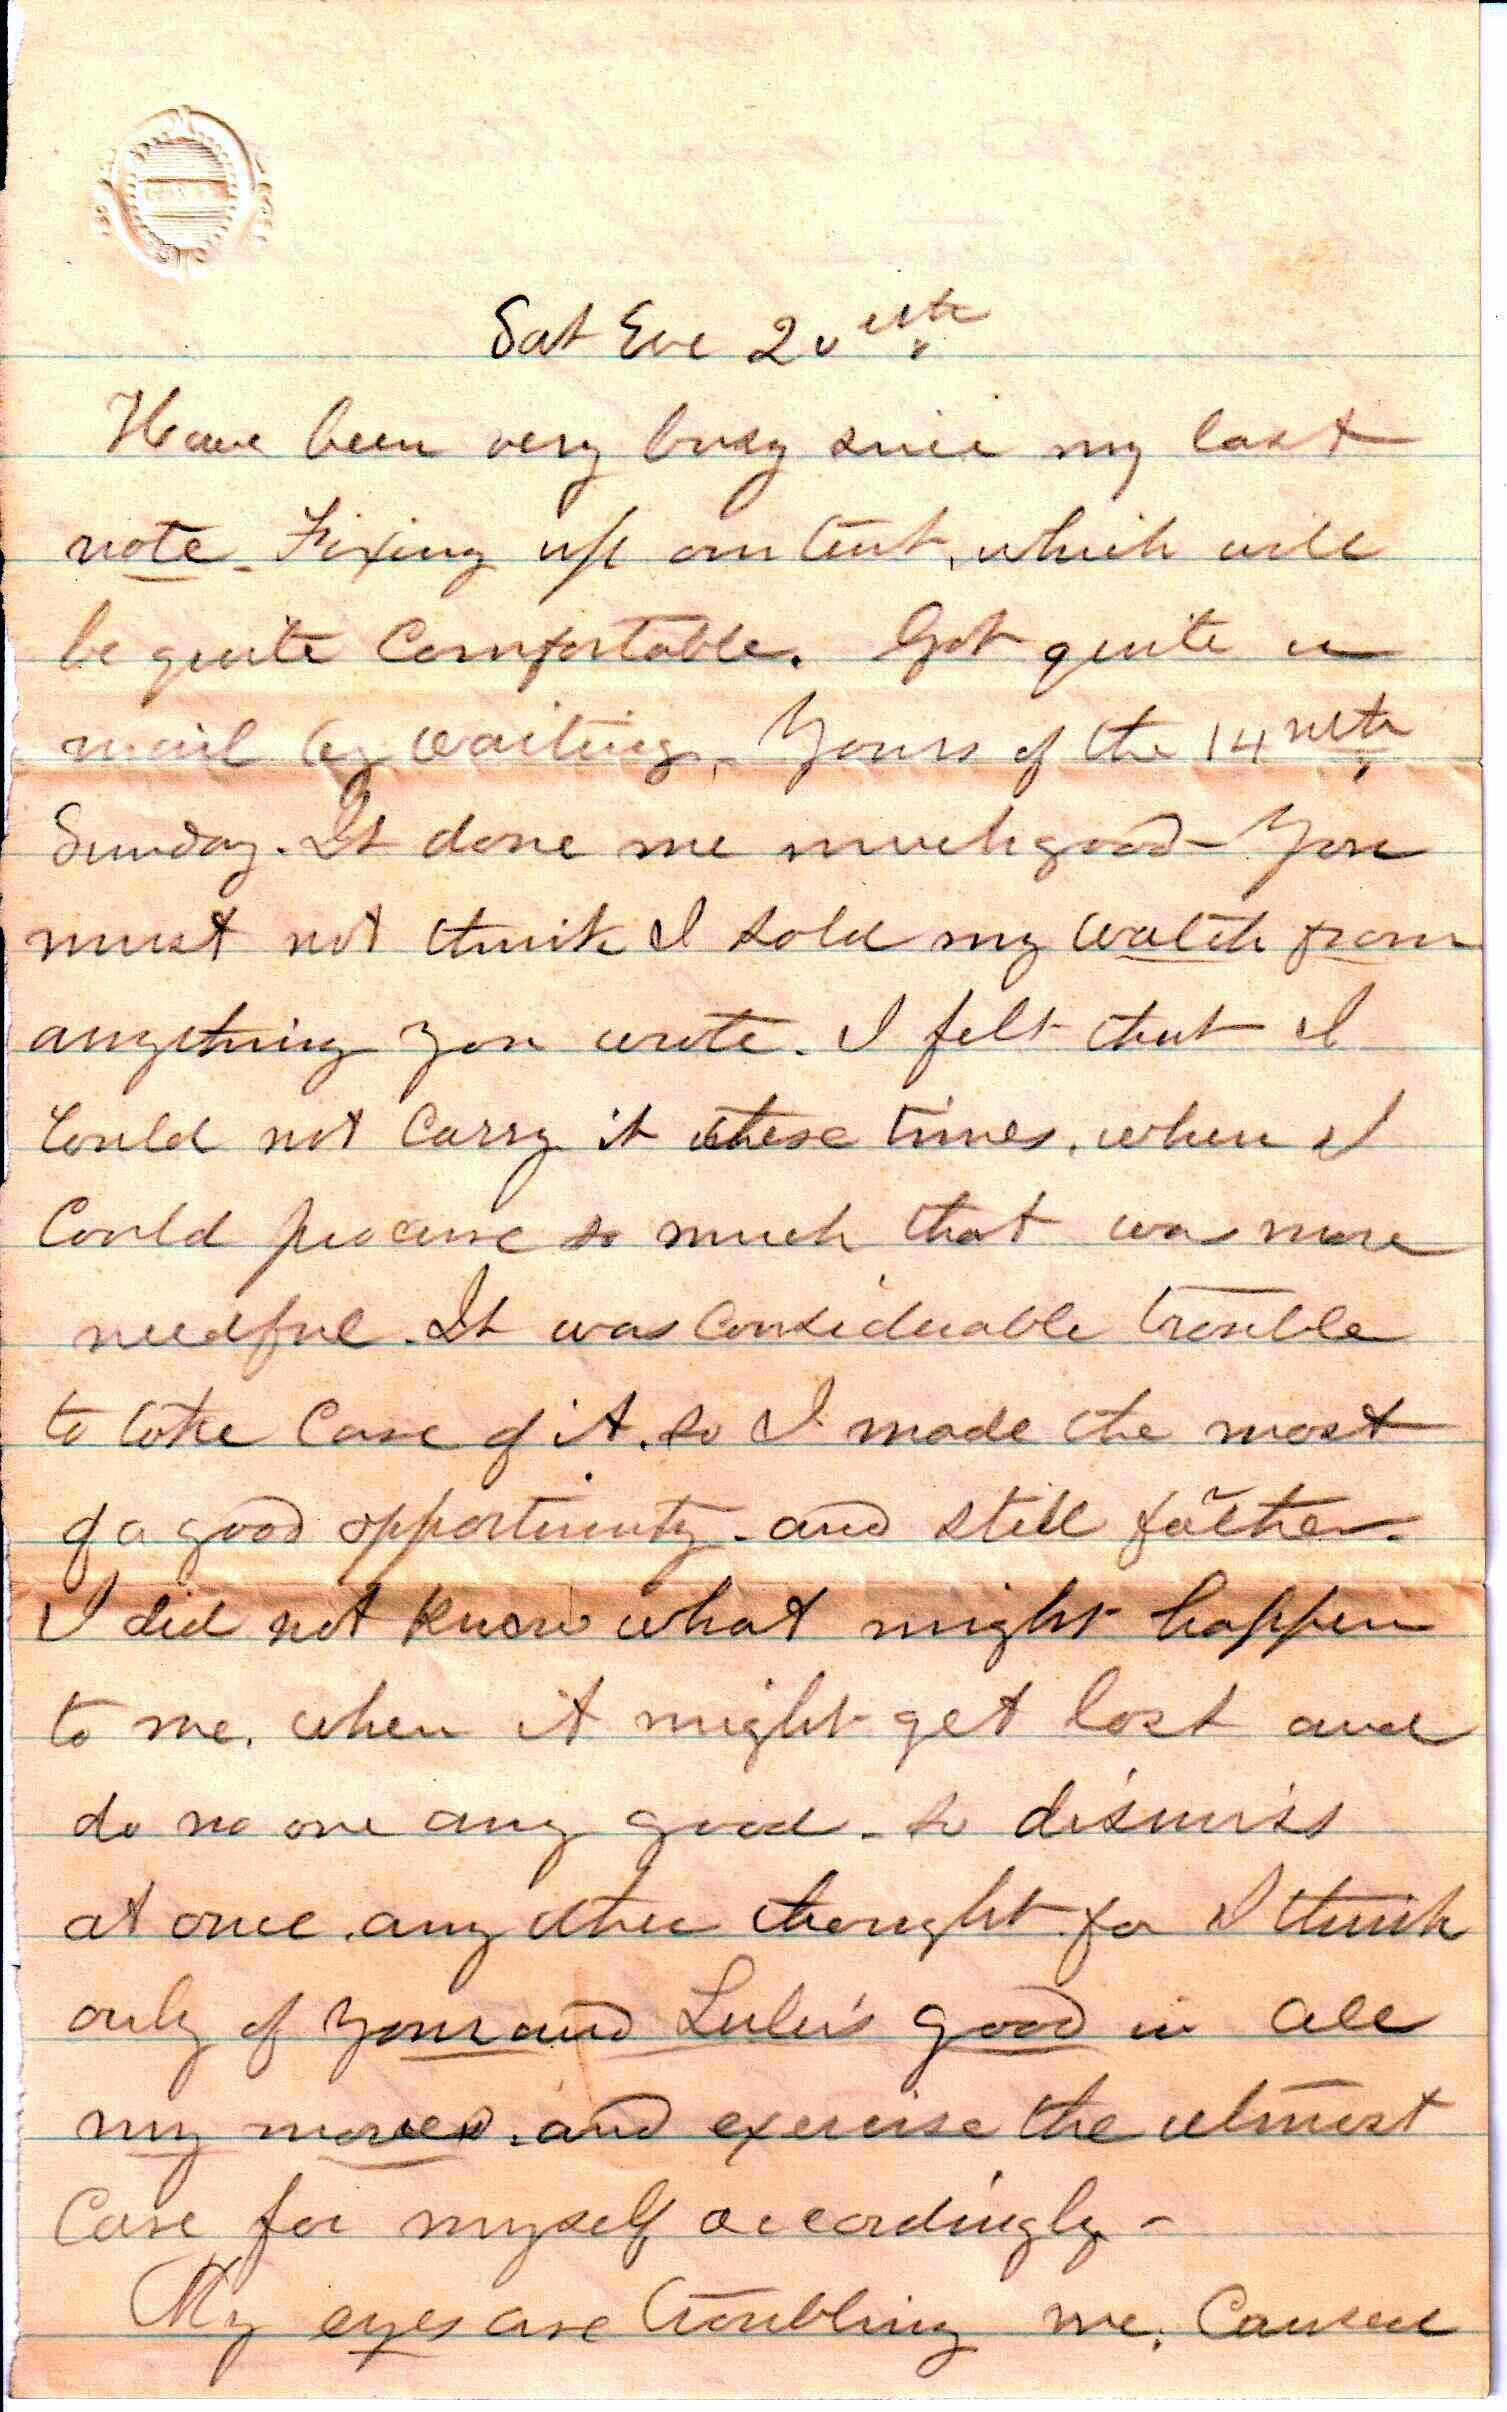 Sat Eve 20
Have been very busy since my last
note. Fixing up our tent, which will
be quite Comfortable. Got quite a
mail by waiting. Yours of the 14
Sunday. It done me much good - You
must not think I sold my watch from
anything you wrote. I felt that I
Could not Carry it these times, when I
Could procure so much that was more
needful. It was Considerable trouble
to take Care of it. so I made the most
of a good opportunity - and still further.
I did not Know what might happen
to me. when it might get lost and
do no one any good - so dismiss
at once any other thought for I think
only of your and Lulu's good in all
my moves. and exercise the utmost
Care for myself accordingly -
My eyes are troubling me. Caused